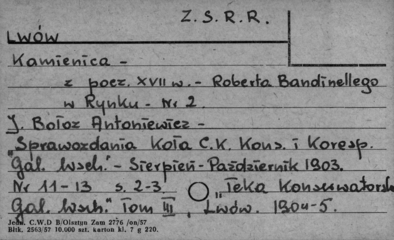 Z. S. R. R.
LWÓW
Kamienica -
z pocz. XVII w. - Roberta Bandinellego
w Rynku - Nr 2.
J. Bołoz Antoniewicz -
„Sprawozdania Koła C.K. Kons. i Koresp.
Gal. Wsch.” - Sierpień - Październik 1903.
Nr 11-13 s. 2-3. „Teka Konserwatorsk
Gal. Wsch.” Tom III, Lwów. 1904-5.
Jedn. C.W.D B/Olsztyn Zam 2776 /on/57
Bltk. 2563/57 10.000 szt. karton kl. 7 g 220.